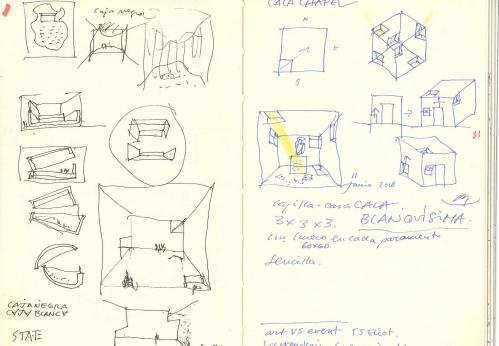 caja negra
CAJA NEGRA
CAJA BLANCA
STATE
CALA CHAPEL
N
E
S
11
junio 2018
capilla-casa CALA
3x3x3. BLANQUÍSIMA.
un hueco en cada paramento
60x60
Sencilla.
art VS event TS Eliot.